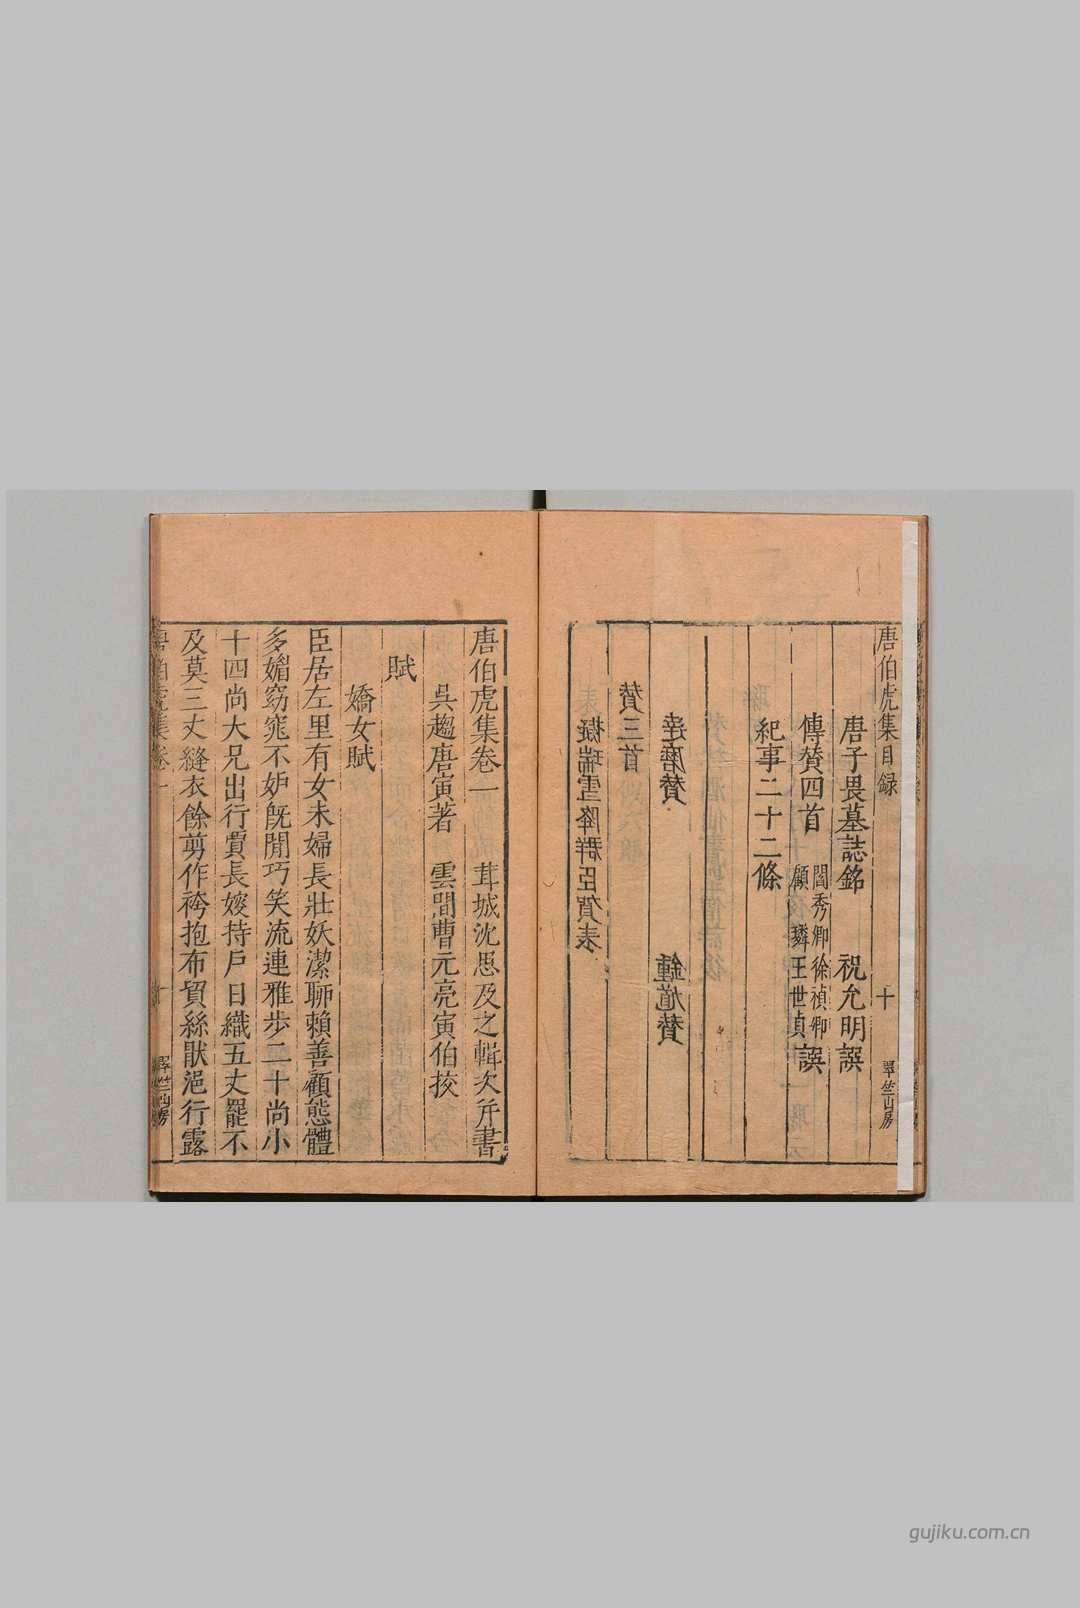 唐伯虎集目録 十 翠竺山房
唐子畏墓誌銘 祝允明譔
傳贊四首 閻秀卿 徐禎卿 顧璘 王世貞 譔
紀事二十二條
達磨贊 鍾馗贊
贊三首
擬瑞雪降群臣賀表
唐伯虎集卷一 茸城沈思及之輯次并書
吳趨唐寅著 雲間曹元亮寅伯挍
賦
嬌女賦
臣居左里有女未婦長壯妖潔聊賴善顧態體
多媚窈窕不妒既閒巧笑流連雅步二十尚小
十四尚大兄出行賈長嫂持戶日織五丈罷不
及莫三丈縫衣餘剪作袴抱布貿絲猒浥行露
唐伯虎集卷一 一 翠竺山房
gujiku.com.cn